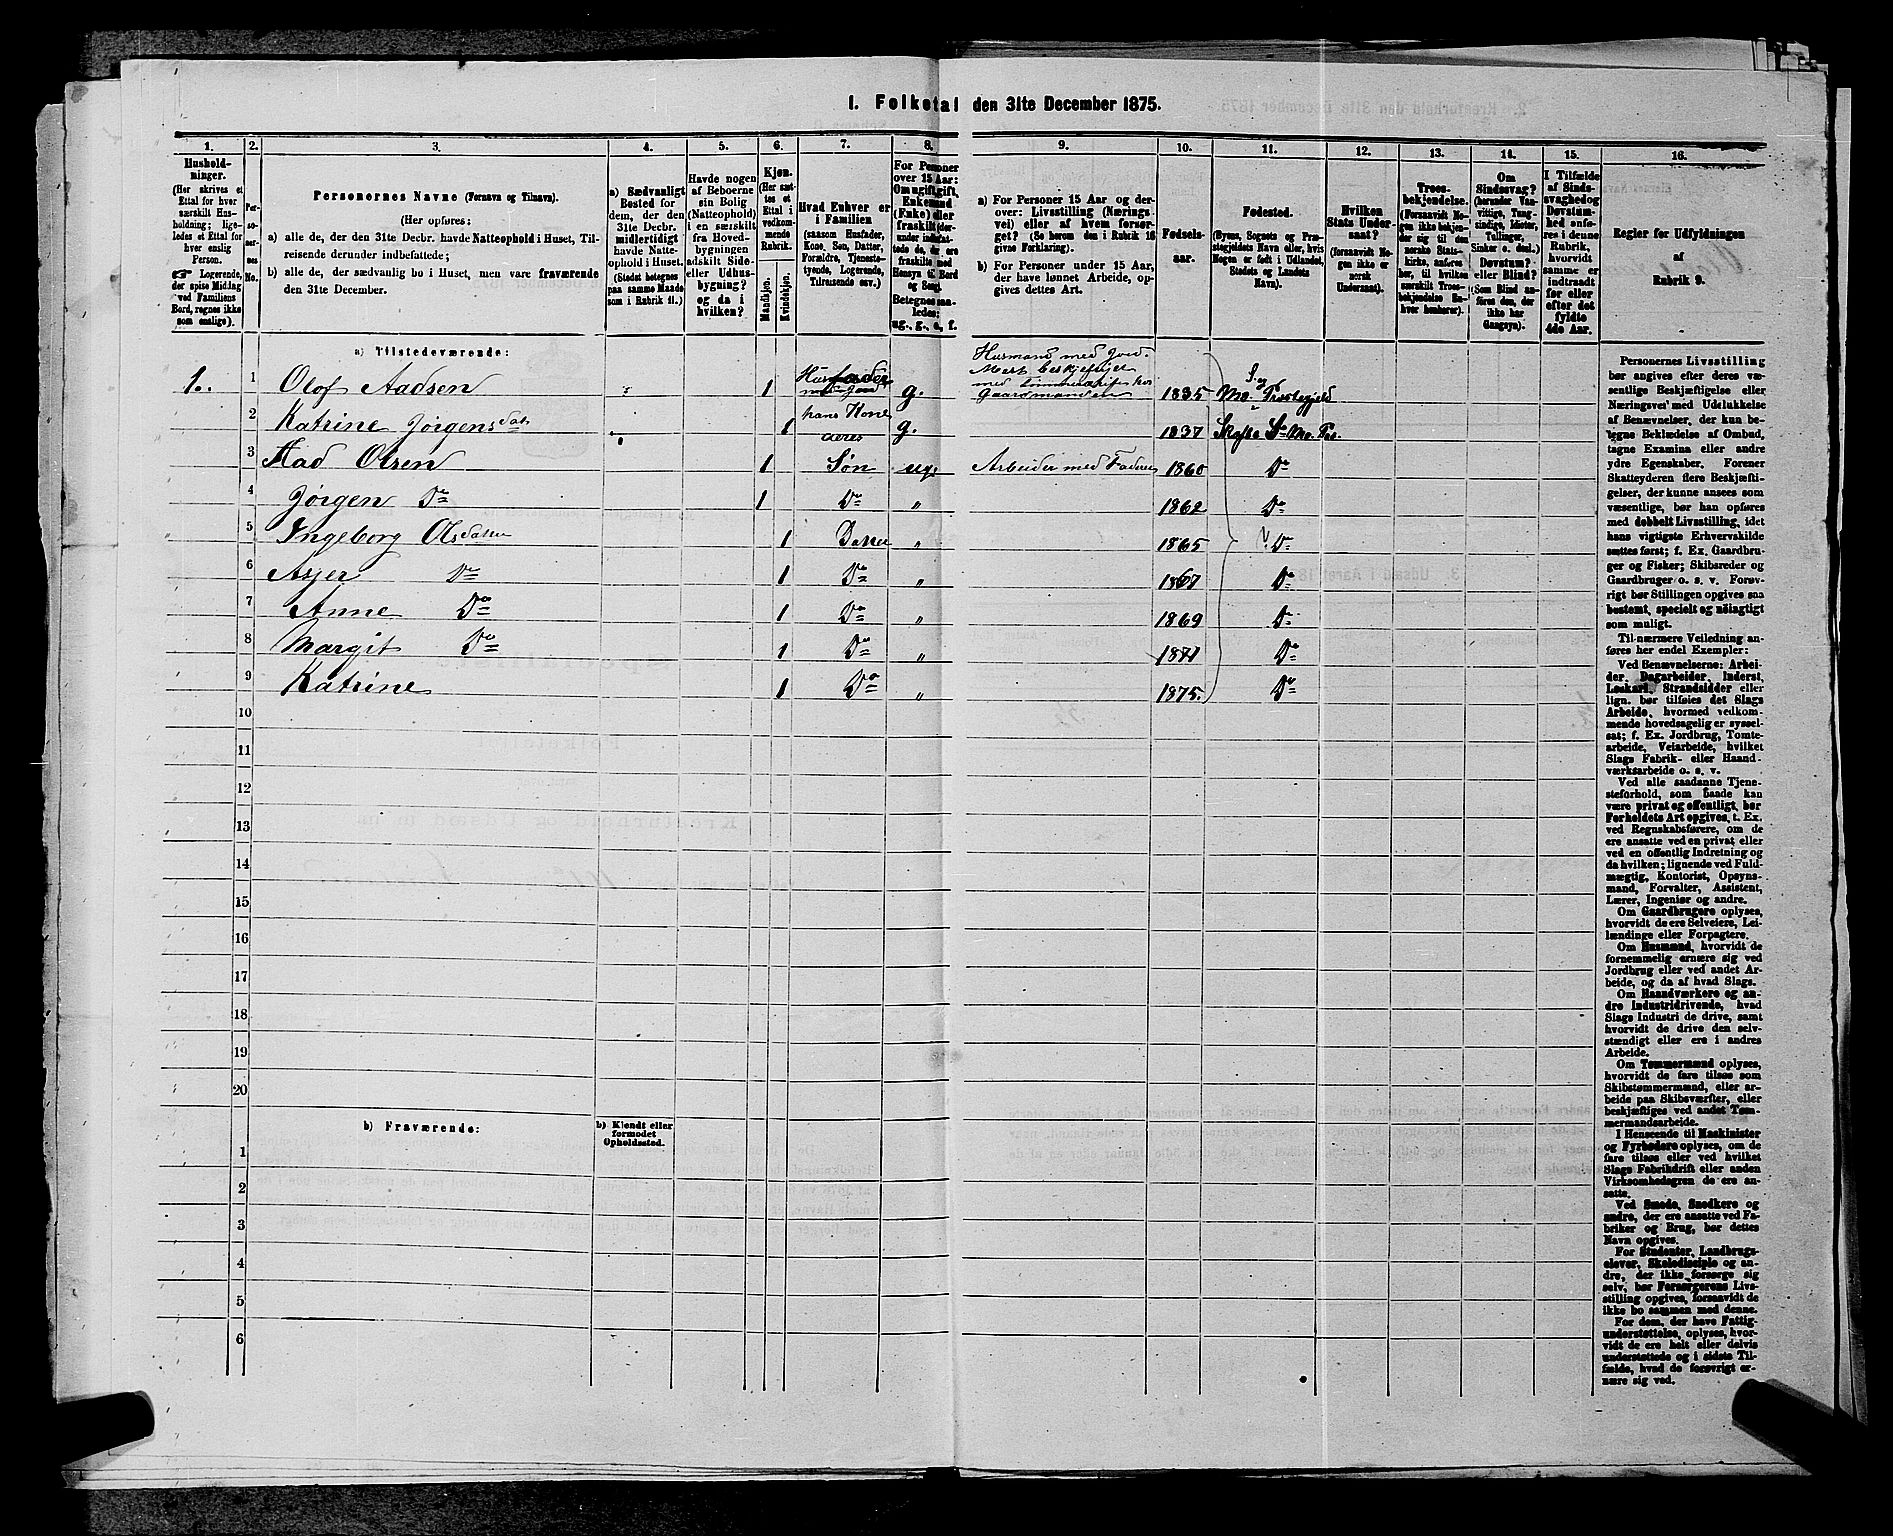 1. Folketal den 31te December 1875.
1. 2. 3. 4. 5. 6. 7. 8. 9. 10. 11. 12. 13. 14. 15. 16.
Husholdninger.
(Her skrives et
Ettal for hver
særskilt Husholdning;
ligeledes et Ettal for
hver enslig
Person.
☛ Logerende,
der spise Middag
ved Familiens
Bord, regnes ikke
som enslige).
Personernes No.
Personernes Navne (Fornavn og Tilnavn).
(Her opføres;
a) alle de, der den 31te Decbr. havde Natteophold i Huset, Tilreisende
derunder indbefattede;
b) alle de, der sædvanlig bo i Huset, men vare fraværende
den 31te December.
a) Sædvanligt
Bosted for
dem, der den
31te Decbr.
midlertidigt
havde Natteophold
i Huset.
(Stedet betegnes
paa samme Maade
som i Rubrik 11.)
Havde nogen
af Beboerne
sin Bolig
(Natteophold)
i en særskilt
fra Hovedbygningen
adskilt Side-
eller Udhusbygning?
og da i
hvilken?
Kjøn.
(Her sættes
et
Ettal i
vedkommende
Rubrik.
Mandkjøn. Kvindekjøn.
Hvad Enhver er
i Familien
(saasom Husfader,
Kone, Søn, Datter,
Forældre, Tjenestetyende,
Logerende,
Tilreisende osv.)
For Personer
over 15 Aar:
Om ugift, gift,
Enkemand
(Enke) eller
fraskilt
Betegnes saaledes:
ug., g., e., f.
a) For Personer 15 Aar og derover:
Livsstilling (Næringsvei)
eller af hvem forsørget?
(Se herom den i Rubrik 16
givne Forklaring).
b) For Personer under 15 Aar,
der have lønnet Arbeide, opgives
dettes Art.
Fødselsaar.
Fødested.
(Byens, Sognets og Præstegjeldets
Navn eller, hvis
Nogen er født i Udlandet,
Stedets og Landets
Navn).
Hvilken
Stats Undersaat?
(forsaavidt Nogen
ikke er
norsk
Undersaat).
Troesbekjendelse.
(Forsaavidt Nogen
ikke bekjender
sig til den
norske Statskirke,
anføres
her, til hvilken
særskilt Troesbekjendelse
Enhver
henhører).
Om
Sindssvag?
(herunder Vanvittige,
Tungsindige,
Idioter,
Tullinger,
Sinker o. desl.)
Døvstum?
eller Blind?
(Som Blind anføres
den, der
ikke har
Gangsyn).
I Tilfælde
af Sindssvaghed
og
Døvstumhed
anføres
i denne
Rubrik,
hvorvidt
samme er
indtraadt
før eller
efter det
fyldte
4de Aar.
Regler for Udfyldningen
af
Rubrik 9.
a) Tilstedeværende:
1. 1 Olof Aadsen 1 Husfader g. Husmand med Jord. Mest beskjeftiget med hos Gaardmanden 1835 Mo Præstegjeld
2 Katrine Jørgensdat 1 hans Kone g. 1837 Skafse S Mo
3 Aad Olsen 1 Søn ug. Arbeider med Faderen 1860 Do
4 Jørgen Do 1 Do " 1862 Do
5 Ingeborg Olsdatter 1 Datter " 1865 Do
6 Asjer Do 1 Do " 1867 Do
7 Anne Do 1 Do " 1869 Do
8 Margit Do 1 Do " 1871 Do
9 Katrine 1 Do " 1875. Do
10
11
12
13
14
15
16
17
18
19
20
b) Fraværende:
b) Kjendt eller
formodet
Opholdssted.
1
2
3
4
5
6
Personernes Livsstilling
bør angives efter deres væsentlige
Beskjæftigelse eller
Næringsvei med Udelukkelse
af Benævnelser, der kun betegne
Beklædelse af Ombud,
tagne Examina eller andre
ydre Egenskaber. Forener
Skatteyderen flere Beskjæftigelser,
der kunne ansees som
væsentlige, bør han opføres
med dobbelt Livsstilling, idet
hans vigtigste Erhvervskilde
sættes først; f. Ex. Gaardbruger
og Fisker; Skibsreder og
Gaardbruger o. s. v. Forøvrigt
bør Stillingen opgives saa
bestemt, specielt og nøiagtigt
som muligt.
Til nærmere Veiledning anføres
her endel Exempler:
Ved Benævnelserne: Arbeider,
Dagarbeider, Inderst,
Løskarl, Strandsidder eller
lign. bør tilføies det Slags
Arbeide, hvormed vedkommende
hovedsagelig er sysselsat;
f. Ex. Jordbrug, Tomtearbeide,
Veiarbeide, hvilket
Slags Fabrik- eller Haandværksarbeide
o. s. v.
Ved alle saadanne Tjenesteforhold,
som baade kan
være privat og offentligt, bør
Forholdets Art opgives, t. Ex.
ved Regnskabsførere, om de
ere ansatte ved en privat eller
ved en offentlig Indretning og
da hvilken; lignende ved Fuldmægtig,
Kontorist, Opsynsmand,
Forvalter, Assistent,
Lærer, Ingeniør og andre.
Om Gaardbrugere oplyses,
hvorvidt de ere Selveiere, Leilændinge
eller Forpagtere.
Om Husmænd, hvorvidt de
fornemmelig ernære sig ved
Jordbrug eller ved andet Arbeide,
og da af hvad Slags.
Om Haandværkere og andre
Industridrivende, hvad
Slags Industri de drive, samt
hvorvidt de drive den selvstændigt
eller ere i andres
Arbeide.
Om Tømmermænd oplyses,
hvorvidt de fare tilsøs som
Skibstømmermænd, eller arbeide
paa Skibsværfter, eller
beskjæftiges ved andet Tømmermandsarbeide.
I Henseende til Maskinister
og Fyrbødere oplyses, om de
fare tilsøs eller ved hvilket
Slags Fabrikdrift eller anden
Virksomhedsgren de ere ansatte.
Ved Smede, Snedkere og
andre, der ere ansatte ved Fabriker
og Brug, bør dettes
Navn opgives.
For Studenter, Landbrugselever,
Skoledisciple og andre,
der ikke forsørge sig
selv, bør Forsørgerens Livsstilling
opgives, forsaavidt de
ikke bo sammen med denne.
For dem, der have Fattigunderstøttelse,
oplyses, hvorvidt
de ere helt eller delvis
understøttede og i sidste Tilfælde,
hvad de forøvrigt ernære
sig ved.